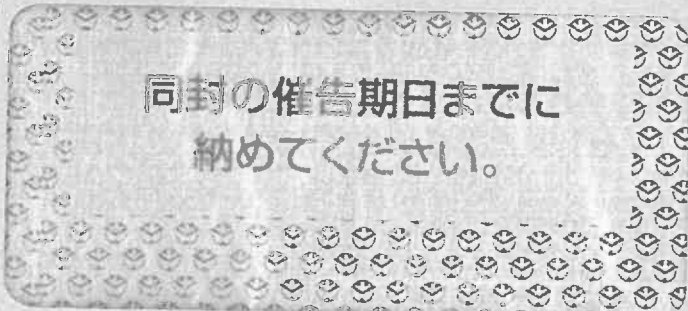 同封の催告期日までに
納めてください。